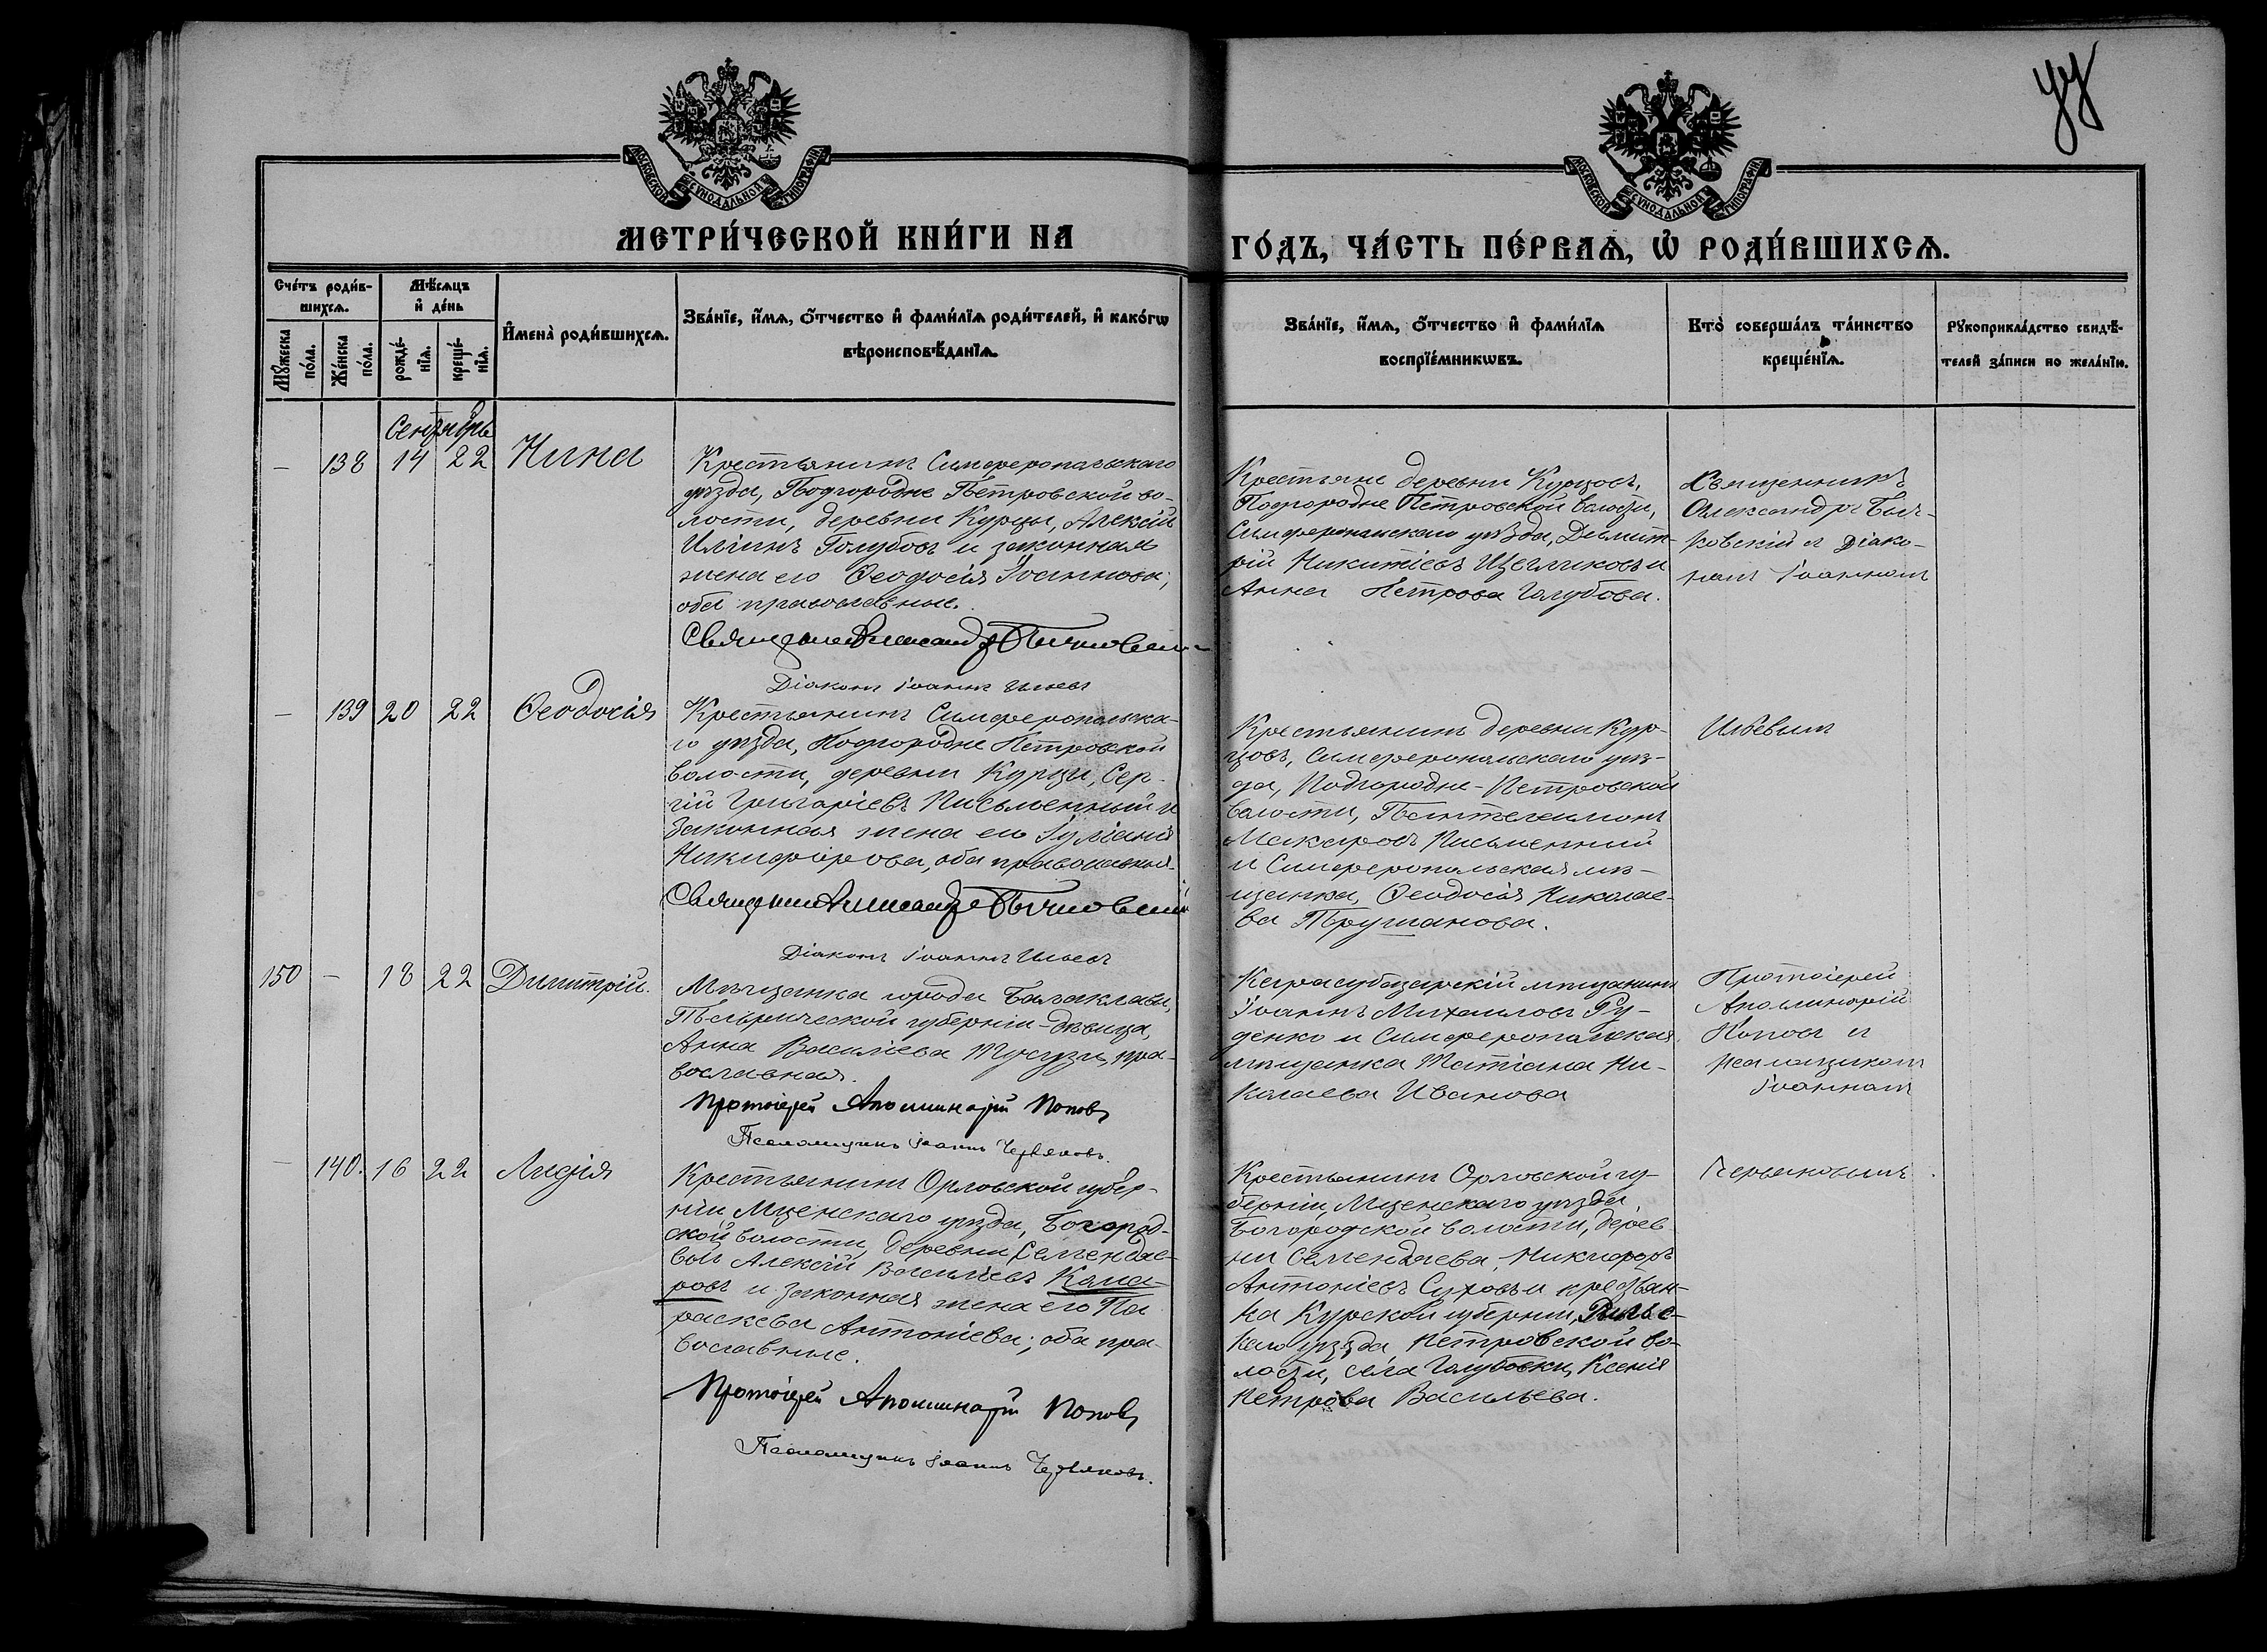 уу
МОСКОВСКОЙ СУНОДАЛЬНОЙ ТИПОГРАФІИ
МОСКОВСКОЙ СУНОДАЛЬНОЙ ТИПОГРАФІИ
МЕТРИ́ЧЕСКОЙ КНИ́ГИ НА
ГО́ДЪ, ЧА́СТЬ ПЕ́РВАѦ, Ѡ҆ РОДИ́ВШИХСѦ.
Сче́тъ роди́в-
шихсѧ.
Мѣ́сѧцъ
и҆ де́нь
Мꙋ́жеска
по́ла.
Же́нска
по́ла.
рожде́-
нїѧ.
креще́-
нїѧ.
И҆мена̀ роди́вшихсѧ.
Зва́нїе, и҆́мѧ, о҆́тчество и҆ фами́лїѧ роди́телей, и҆ како́гѡ
вѣроисповѣ́данїѧ.
Зва́нїе, и҆́мѧ, о҆́тчество и҆ фами́лїѧ
воспрїе́мникѡвъ.
Кто̀ соверша́лъ та́инство
креще́нїѧ.
Рꙋкоприкла́дство свидѣ́-
телей за́писи по жела́нїю.
Сентябрь
— 138 14 22 Нина
Крестьянинъ Симферопольскаго
уѣзда, Подгородне Петровской во-
лости, деревни Курцы, Алексій
Иліинъ Голубовъ и законная
жена его Ѳеодосія Іоаннова;
оба православные.
Священникъ Александръ
Діаконъ Іоаннъ Ильевъ
Крестьяне деревни Курцовъ,
Подгородне Петровской волости,
Симферопольскаго уѣзда, Димит-
рій Никитіевъ и
Анна Петрова Голубова.
Священникъ
Александръ
и Діако-
номъ Іоанномъ
— 139 20 22 Ѳеодосія
Крестьянинъ Симферопольска-
го уѣзда, Подгородне Петровской
волости, деревни Курцы, Сер-
гій Григоріевъ Письменный и
законная жена его Іуліанія
Никифорова, оба православные.
Священникъ Александръ
Діаконъ Іоаннъ Ильевъ
Крестьянинъ деревни Кур-
цовъ, Симферопольскаго уѣз-
да, Подгородне-Петровской
волости, Пантелеимонъ
Макаровъ Письменный
и Симферопольская мѣ-
щанка, Ѳеодосія Николае-
ва Трушанова.
Ильевымъ
150 — 18 22 Димитрій.
Мѣщанка города Балаклавы,
Таврической губерніи - дѣвица,
Анна Василіева пра-
вославная.
Протоіерей Аполлинарій Поповъ
Псаломщикъ Іоаннъ Червяковъ.
Карасубазарскій мѣщанинъ
Іоаннъ Михаиловъ Ру-
денко и Симферопольская
мѣщанка Татіана Ни-
колаева Иванова
Протоіерей
Аполлинарій
Поповъ и
псаломщикомъ
Іоанномъ
— 140. 16 22 Лидія
Крестьянинъ Орловской губер-
ніи Мценскаго уѣзда, Богород-
ской волости, деревни Семендяе-
вой Алексій Василіевъ Кома-
ровъ и законная жена его Па
раскева Антоніева; оба пра-
вославные.
Протоіерей Аполлинарій Поповъ
Псаломщикъ Іоаннъ Червяковъ.
Крестьянинъ Орловской гу-
берніи, Мценскаго уѣзда
Богородской волости, дерев
ни Семендяева, Никифоръ
Антоніевъ Суховъ и крестьян-
ка Курской губерніи,
каго уѣзда Петровской во-
лости, села Голубовки, Ксенія
Петрова Васильева.
Червяковымъ